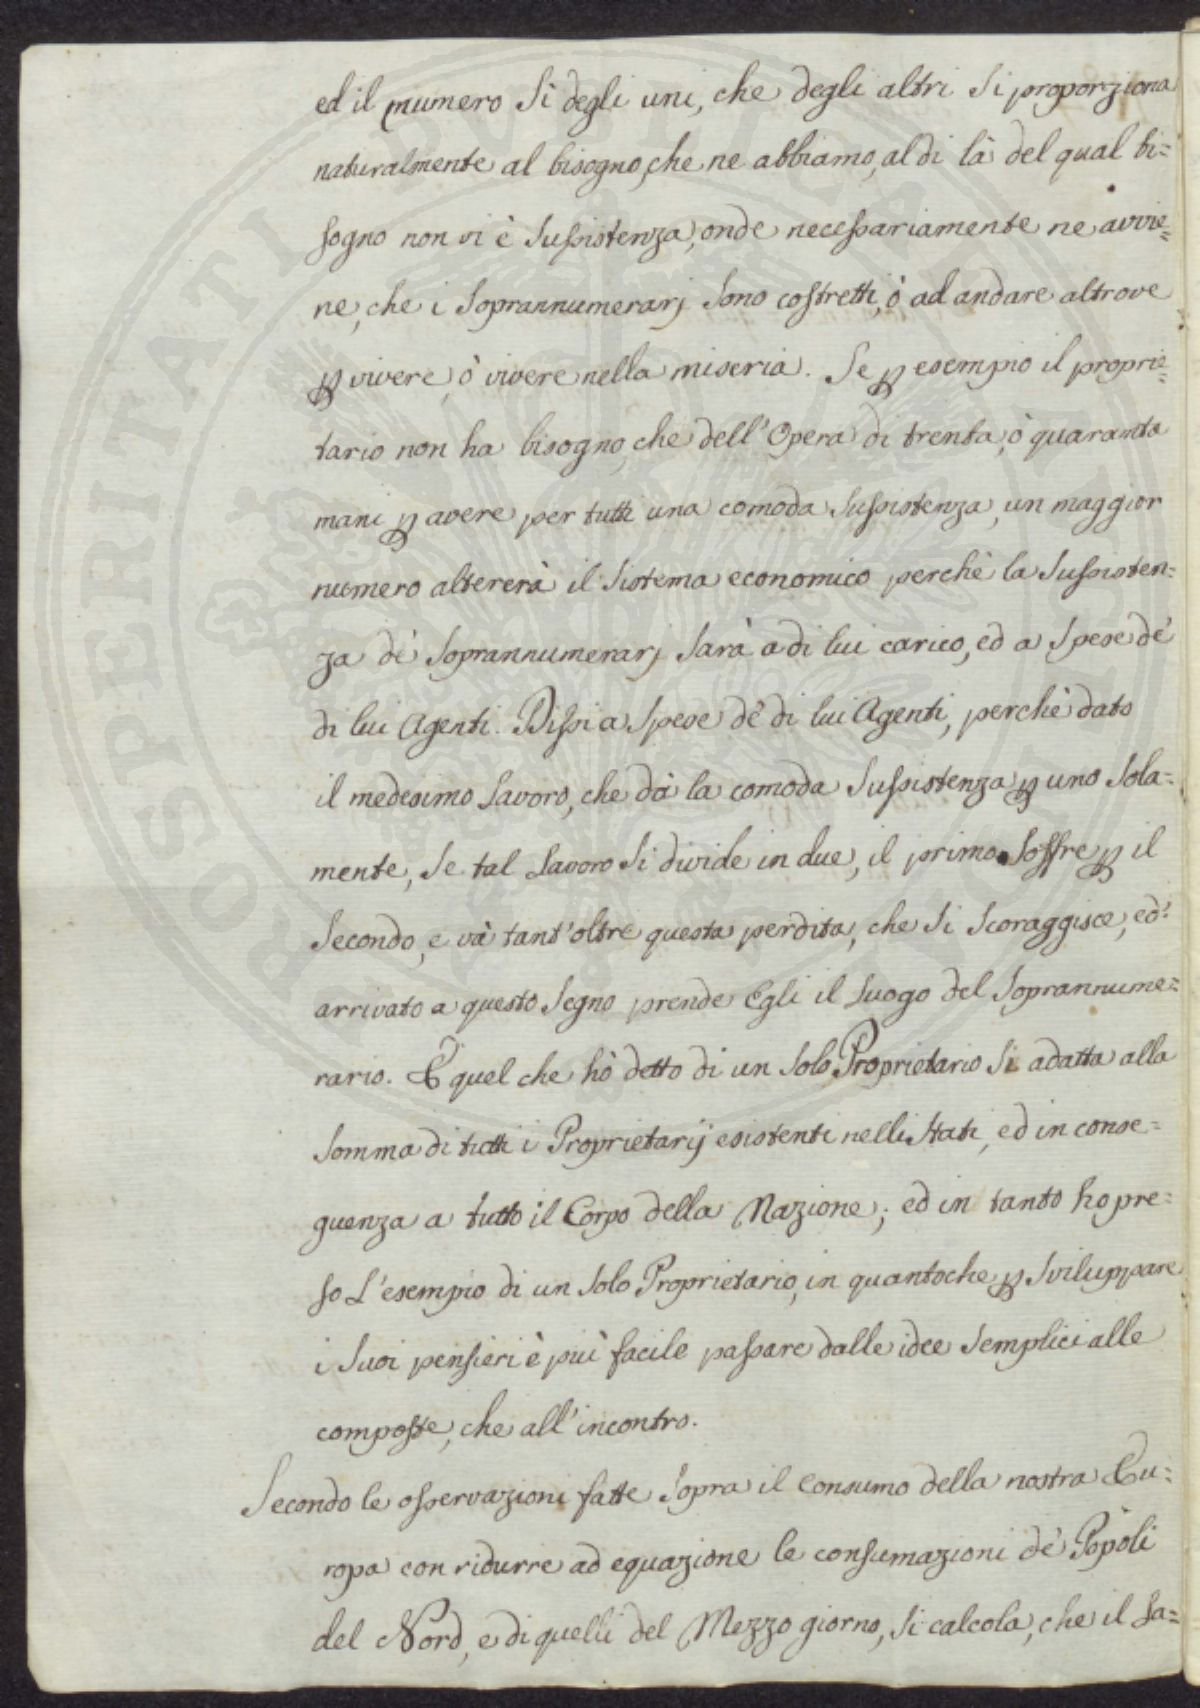 ed il numero sì degli uni, che degli altri si proporziona
naturalmente al bisogno, che ne abbiamo, al di là del qual bi=
sogno non vi è sussistenza, onde necessariamente ne avvie=
ne, che i soprannumerarj sono costretti, ò ad andare altrove
ꝑ vivere, ò vivere nella miseria. Se ꝑ esempio il proprie=
tario non ha bisogno, che dell'Opera di trenta, ò quaranta
mani ꝑ avere per tutti una comoda sussistenza, un maggior
numero altererà il sistema economico perchè la sussisten=
za de' soprannumerarj sarà a di lui carico, ed a spese de'
di lui Agenti. Dissi a spese de' di lui Agenti, perchè dato
il medesimo lavoro, che dà la comoda sussistenza ꝑ uno sola=
mente, se tal lavoro si divide in due, il primo soffre ꝑ il
secondo, e và tant'oltre questa perdita, che si scoraggisce, ed
arrivato a questo segno prende Egli il luogo del soprannume=
rario. E quel che hò detto di un solo Proprietario si adatta alla
somma di tutti i Proprietarij esistenti nelli Stati, ed in conse=
guenza a tutto il Corpo della Nazione; ed in tanto ho pre=
so l'esempio di un solo Proprietario, in quantoche ꝑ sviluppare
i suoi pensieri è più facile passare dalle idee semplici alle
composte, che all'incontro.
Secondo le osservazioni fatte sopra il consumo della nostra Eu=
ropa con ridurre ad equazione le consumazioni de' Popoli
del Nord, e di quelli del Mezzo giorno, si calcola, che il sa=
PROSPERITATI PUBLICAE